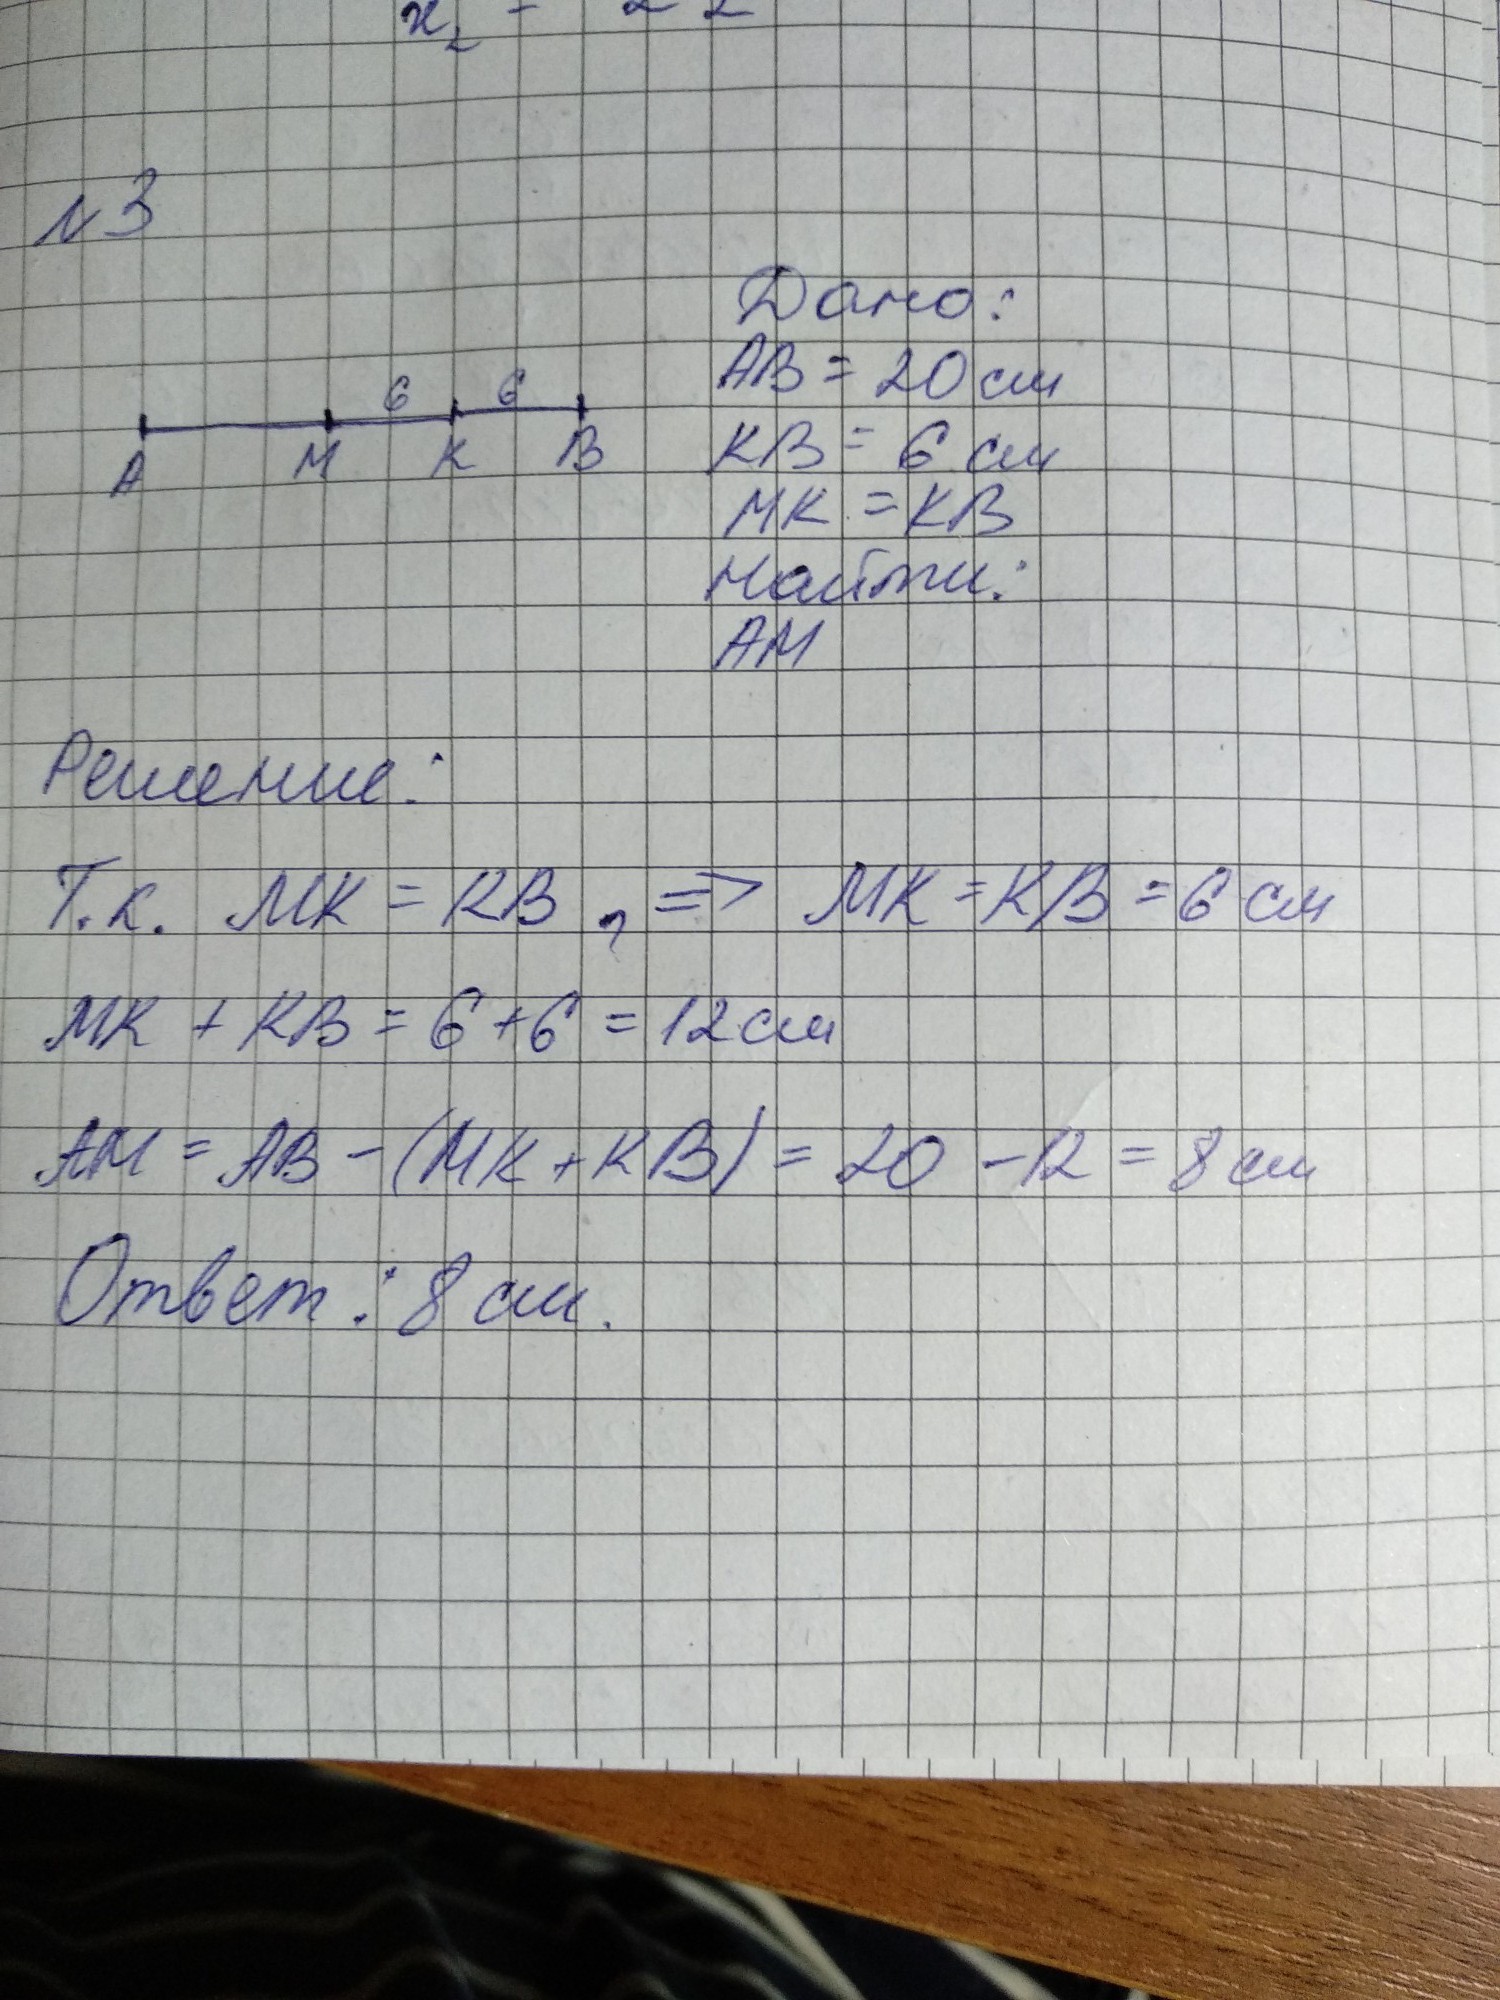 x₂ =
№3
6 6
A M K B
Дано:
AB = 20 см
KB = 6 см
MK = KB
Найти:
AM
Решение:
Т.к. MK = KB, => MK = KB = 6 см
MK + KB = 6 + 6 = 12 см
AM = AB - (MK + KB) = 20 - 12 = 8 см
Ответ: 8 см.